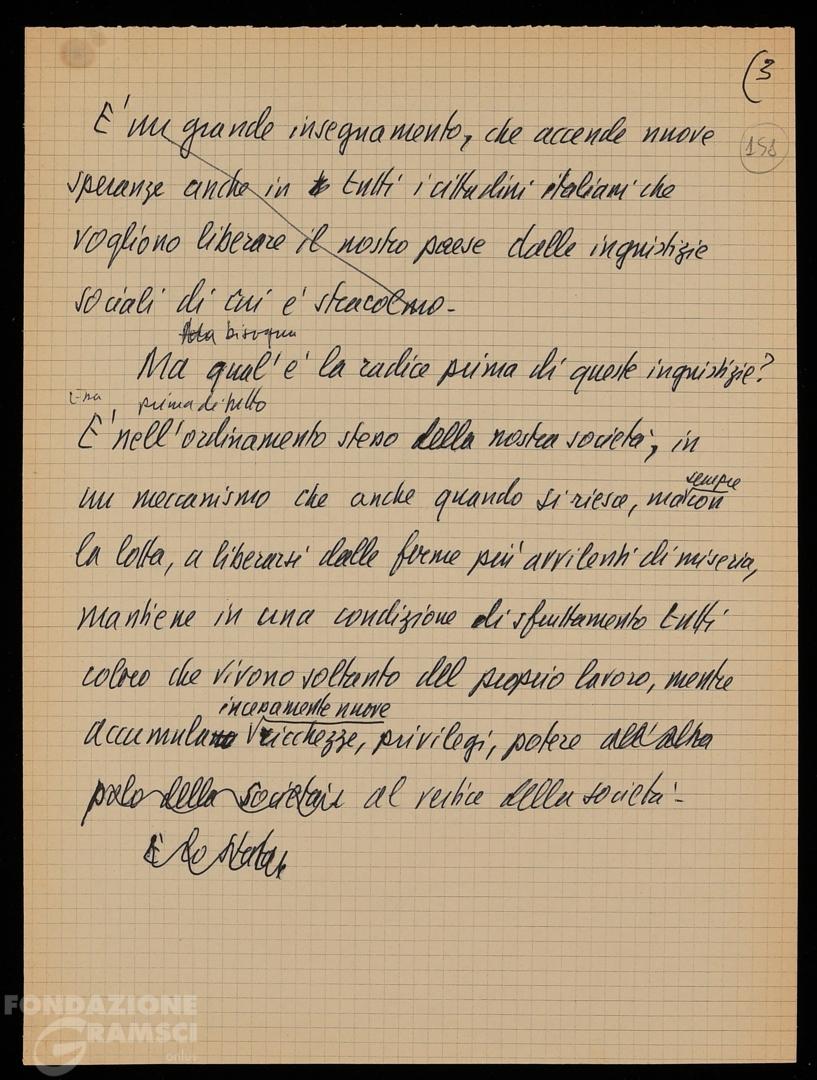 (3
151
E' un grande insegnamento, che accende nuove
speranze anche in t tutti i cittadini italiani che
vogliono liberare il nostro paese dalle ingiustizie
sociali di cui e' stracolmo -
Ma bisogna
Ma qual' e' la radice prima di queste ingiustizie?
prima di tutto
E' nell'ordinamento stesso della nostra società, in
un meccanismo che anche quando si riesce, ma con
sempre
la lotta, a liberarsi dalle forme più avvilenti di miseria,
mantiene in una condizione di sfruttamento tutti
coloro che vivono soltanto del proprio lavoro, mentre
incessantemente nuove
accumulano ricchezze, privilegi, potere all'altro
polo della società al vertice della società -
È lo Stato
FONDAZIONE
GRAMSCI
onlus